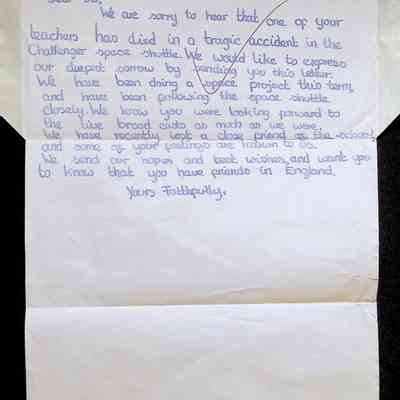 Dear Sir,
We are sorry to hear that one of your
teachers has died in a tragic accident in the
Challenger space shuttle. We would like to express
our deepest sorrow by sending you this letter.
We have been doing a space project this term
and have been following the space shuttle
closely. We know you were looking forward to
the live broad casts as much as we were.
We have recently lost a close friend of the school,
and some of your feelings are known to us.
We send our hopes and best wishes, and want you
to know that you have friends in England.
Yours Faithfully,